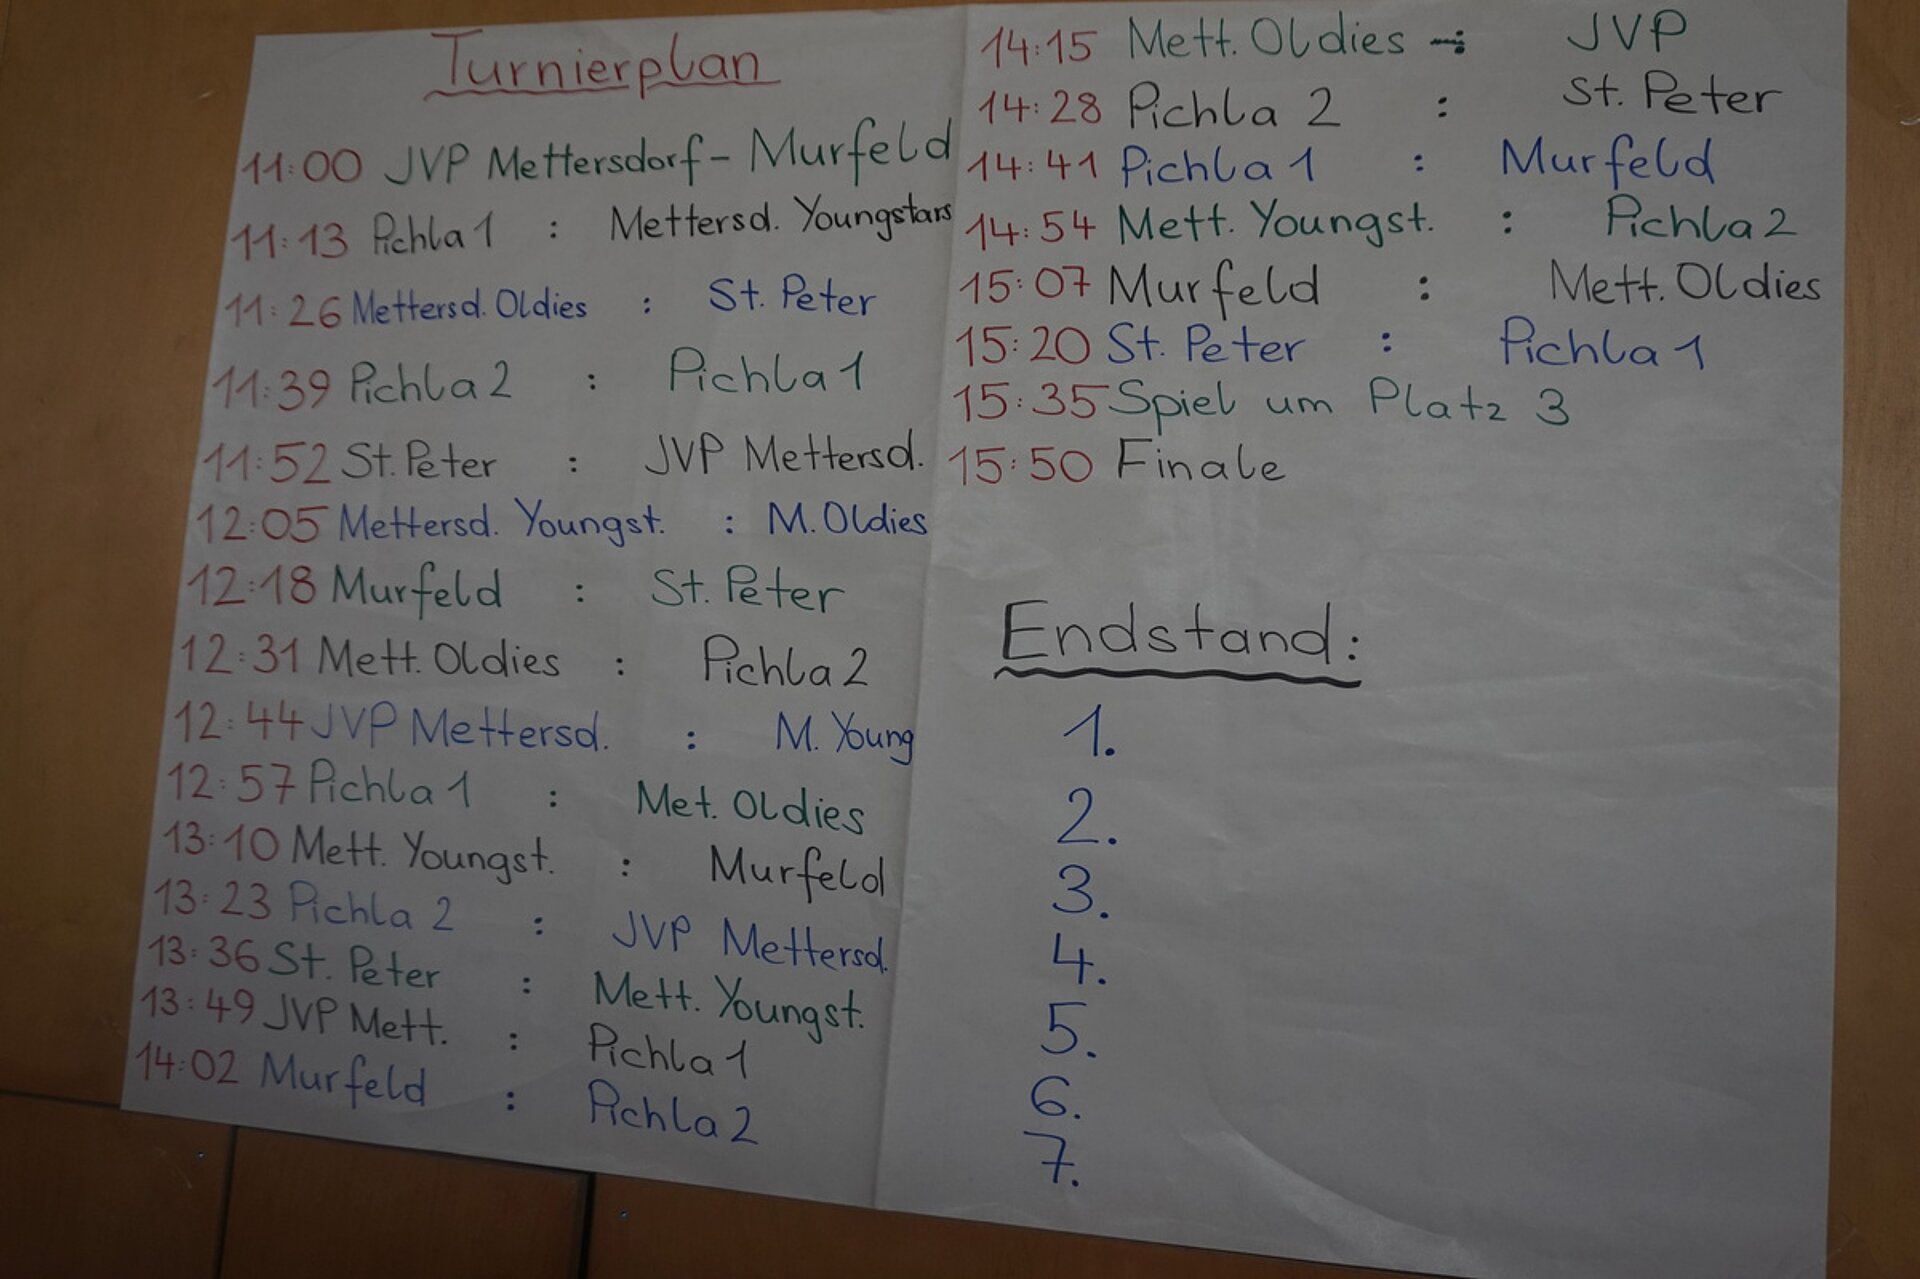 Turnierplan
11:00 JVP Mettersdorf - Murfeld
11:13 Pichla 1 : Mettersd. Youngstars
11:26 Mettersd. Oldies : St. Peter
11:39 Pichla 2 : Pichla 1
11:52 St. Peter : JVP Mettersd.
12:05 Mettersd. Youngst. : M. Oldies
12:18 Murfeld : St. Peter
12:31 Mett. Oldies : Pichla 2
12:44 JVP Mettersd. : M. Young
12:57 Pichla 1 : Met. Oldies
13:10 Mett. Youngst. : Murfeld
13:23 Pichla 2 : JVP Mettersd.
13:36 St. Peter : Mett. Youngst.
13:49 JVP Mett. : Pichla 1
14:02 Murfeld : Pichla 2
14:15 Mett. Oldies : JVP
14:28 Pichla 2 : St. Peter
14:41 Pichla 1 : Murfeld
14:54 Mett. Youngst. : Pichla 2
15:07 Murfeld : Mett. Oldies
15:20 St. Peter : Pichla 1
15:35 Spiel um Platz 3
15:50 Finale
Endstand:
1.
2.
3.
4.
5.
6.
7.